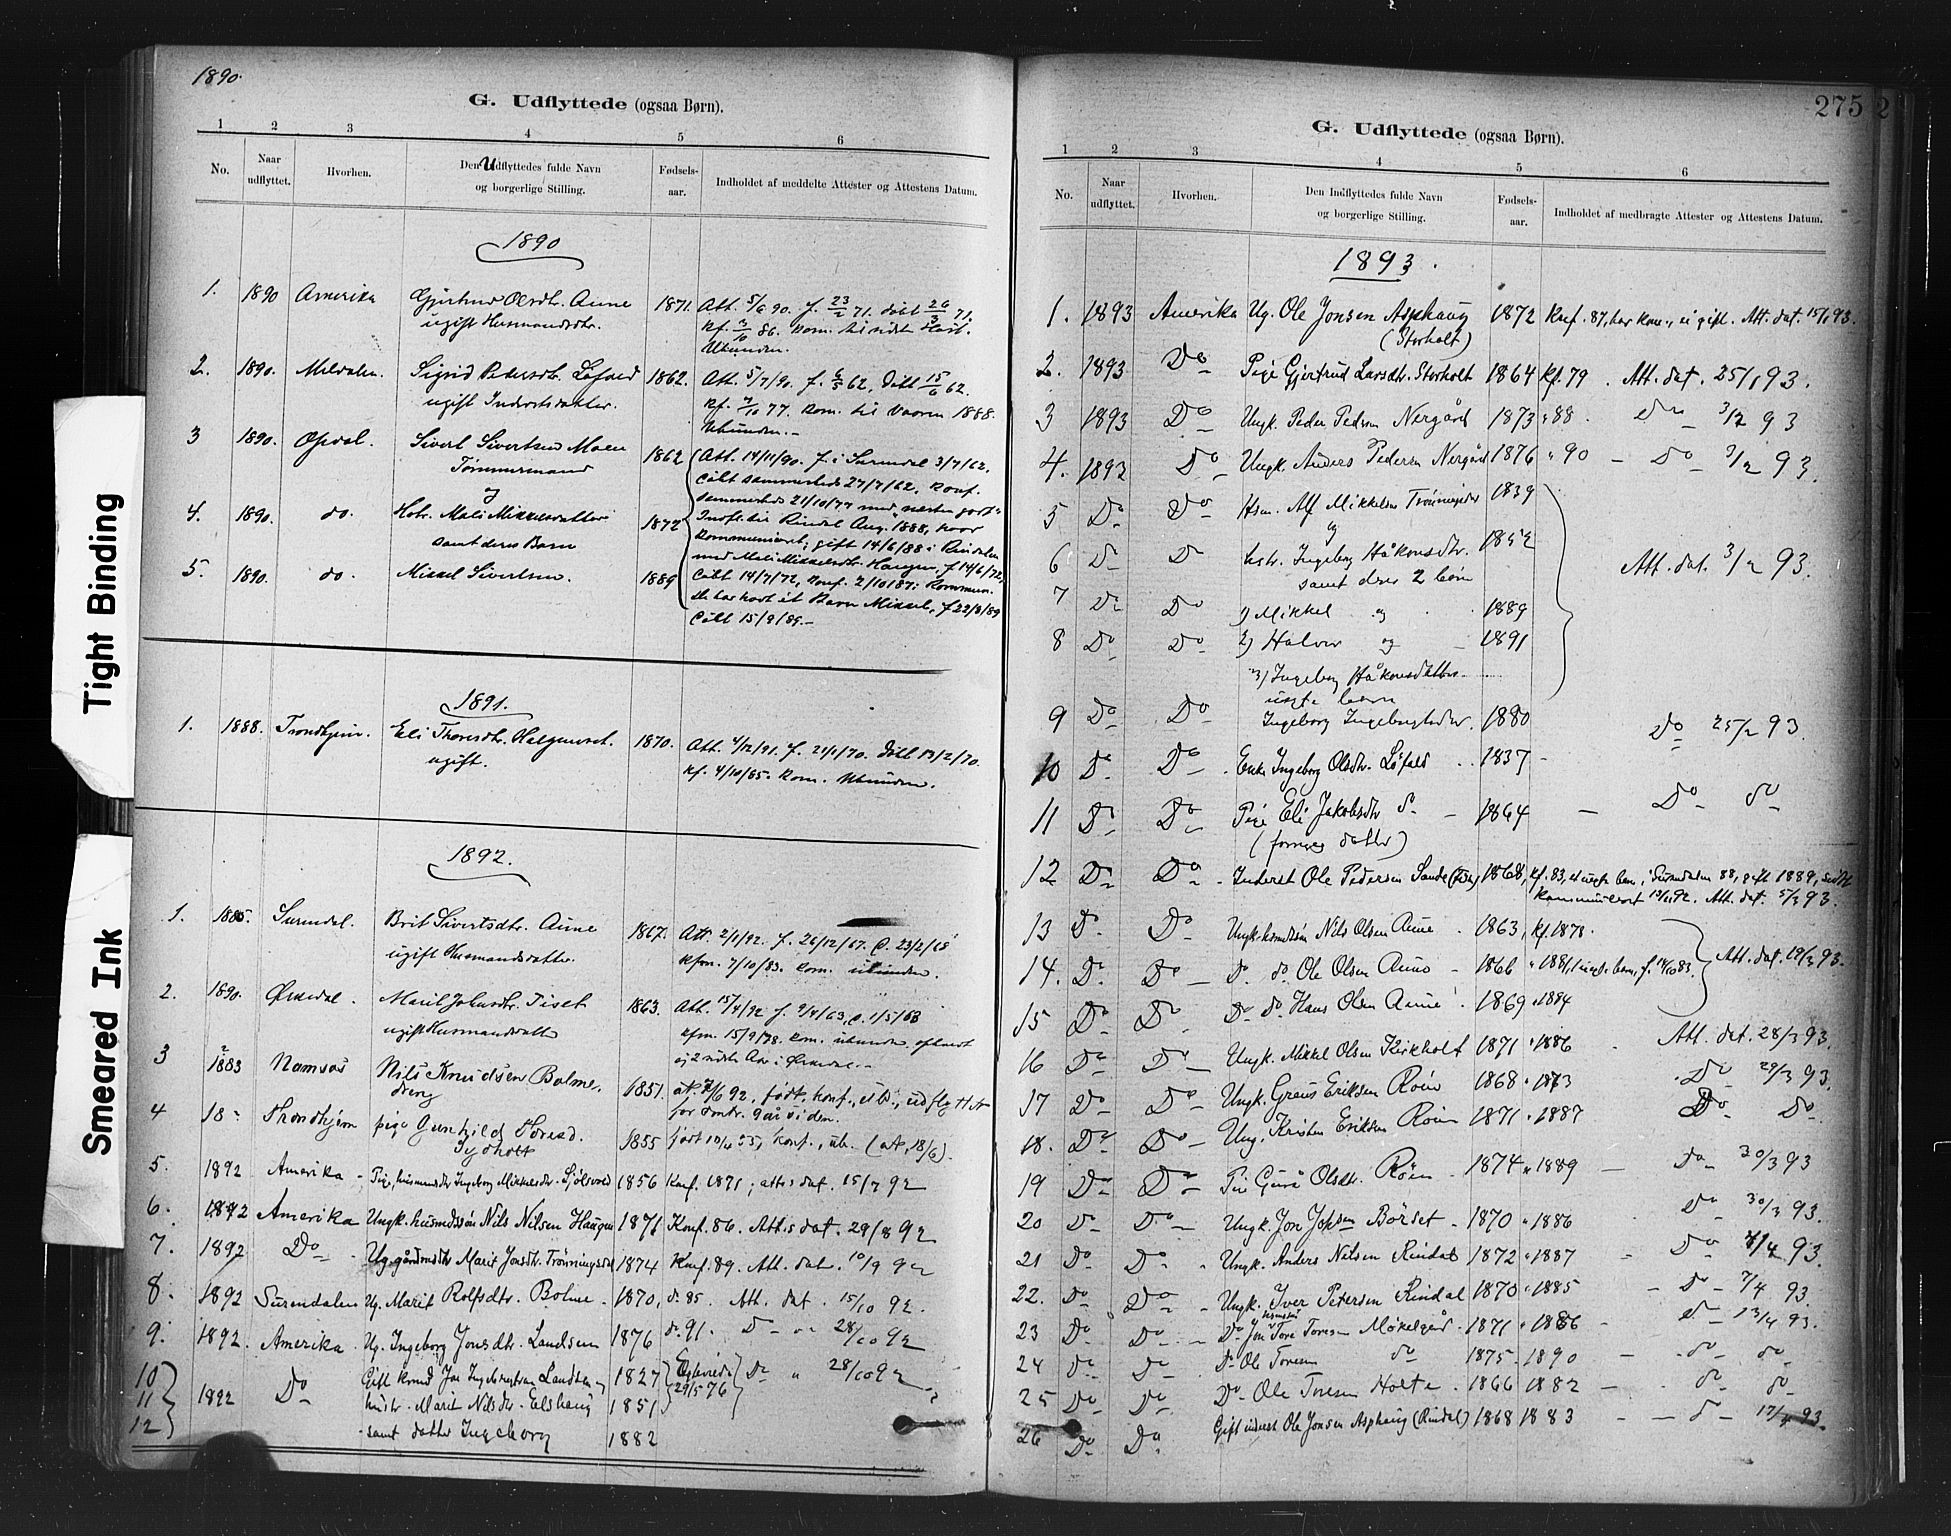 1890.
G. Udflyttede (ogsaa Børn).
1 2 3 4 5 6
No. Naar udflyttet. Hvorhen. Den Udflyttedes fulde Navn og borgerlige Stilling. Fødsels-aar. Indholdet af meddelte Attester og Attestens Datum.
1890
1. 1890 Amerika Gjertrud Olsdtr. Aune 1871. Att. 5/6 90. f. 23/2 71. døbt 26/3 71.
ugift Husmandsdtr. kf. 3/10 86. kom. til sidst Høst.
Ubunden.
2. 1890. Meldalen. Sigrid Pedersdtr. Løfald 1862. Att. 5/7/90. f. 6/5 62, døbt 15/6 62.
ugift Inderstdatter. kf. 7/10 77. kom. til Vaaren 1888.
Ubunden.-
3 1890. Opdal. Sivert Sivertsen Moen 1862 Att. 14/11/90. f. i Surendal 3/7/62.
Tømmermand døbt sammesteds 27/7/62, konf.
og sammesteds 21/10/77 med
4. 1890. do. Hstr. Mali Mikkelsdatter 1872 Indfl. til Rindal Aug. 1888, hvor
samt deres Barn kommuniceret; gift 14/6/88 i Rindalen
med Mali Mikkelsdtr. Haugen, f. 14/6/72,
5. 1890. do. Mikkel Sivertsen. 1889 døbt 14/7/72, konf. 2/10 87; Kommun.
De har havt et Barn Mikkel, f. 22/8/89
døbt 15/9/89.-
1891.
1. 1888. Trondhjem. Eli Thoresdtr. Helgetunet. 1870. Att. 4/12/91. f. 21/1/70. døbt 13/2/70.
ugift. kf. 4/10/85. kom. Ubunden.
1892.
1. 1885. Surendal. Brit Sivertsdtr. Aune 1867. Att. 2/1/92. f. 26/12/67. d. 23/2/68
ugift Husmandsdatter. kfm. 7/10/83. kom. ubunden.
2. 1890. Ørkedal. Marit Johnsdtr. Tiset 1863. Att. 15/4/92 f. 9/4/63, d. 1/5/63
ugift Husmandsdatt kfm. 15/9/78. kom. ubunden. opholdt
sig 2 sidste Aar i Ørkedal.-
3 1883 Namsos Nils Knudsen Bolme, 1851. født, konf., ub., udflyttet
dreng for omtr. 9 år siden.
4 18- Throndhjem pige Gunhild Toresd. 1855 født 10/4 55, konf., ub. (att. 18/6).
Tydholt
5. 1892 Amerika - Pige, husmandsdtr Ingeborg Mikkelsdtr. Sjølsvold 1856 Konf. 1871; attes dat. 15/7 92
6. 1892 Amerika Ungk. husmdssøn Nils Nilsen Haugen 1871 Konf. 86. Att.s dat. 29/8 92
7. 1892 Do Ug. gårdmdsdtr Marit Jonsdtr. Trønningsdal 1874 Konf. 89. Att. dat. 10/9 92
8. 1892 Surendalen Ug. Marit Rolfsdtr. Bolme 1870, d. 85. Att. dat. 15/10 92.
9. 1892. Amerika. Ug. Ingeborg Jonsdtr. Landsem 1876 d. 91. Do 28/10 92
10 Gift kmnd Jon Ingebrigtsen Landsem 1827 Egtevied Do 28/10 92
11 1892 Do hustr. Marit Nilsdtr. Elshaug 1851 29/5 76
12 samt datter Ingeborg 1882
275 2
G. Udflyttede (ogsaa Børn).
1 2 3 4 5 6
No. Naar udflyttet. Hvorhen. Den Indflyttedes fulde Navn og borgerlige Stilling. Fødsels-aar. Indholdet af medbragte Attester og Attestens Datum.
1893.
1. 1893 Amerika Ug. Ole Jonsen Asphaug 1872 Konf. 87, har kom., ei gift. Att. dat. 15/1 93.
(Storholt)
2. 1893 Do Pige Gjertrud Larsdtr. Storholt 1864 kf. 79. Att. dat. 25/1 93.
3 1893 Do Ungk. Peder Pedersen Nergård 1873 " 88. Do 3/2 93
4. 1893 Do Ungk. Anders Pedersen Nergård 1876 " 90 - Do 3/2 93.
5 Do Do Hsm. Alf Mikkelsen Trønningsdal 1839
og
6 Do Do hstr. Ingeborg Håkonsdtr. 1852 Att. dat. 3/2 93.
samt deres 2 børn
7 Do Do 1) Mikkel og 1889
8 Do Do 2) Halvor og 1891
3) Ingeborg Håkonsdatters
uegte barn
9 Do Do Ingeborg Ingebrigtsdtr. 1880 Do 25/2 93.
10 Do Do Enke Ingeborg Olsdtr. Løfald 1837 -
11 Do Do Pige Eli Jakobsdtr do - 1864 - Do do
(forriges datter)
12 Do Do Inderst Ole Pedersen Sande 1868, kf. 83, et uegte barn, i Surendalen 88, gift 1889, sidst
kommuniceret 13/11 92. Att. dat. 5/3 93.
13 Do Do Ungk. husmdssøn Nils Olsen Aune 1863, kf. 1878.
14. Do Do do do Ole Olsen Aune - 1866 " 1881, 1 uegte barn, f. 14/10 83. Att. dat. 19/3 93.
15 Do Do Do do Hans Olsen Aune 1869 " 1884
16 Do Do Ungk. Mikkel Olsen Kirkholt 1871 " 1886 Att. dat. 28/3 93.
17 Do Do Ungk. Graus Eriksen Røen 1868 " 1873 Do 29/3 93.
18. Do Do Ung. Kristen Eriksen Røen 1871 " 1887 Do Do
19 Do Do Pige Guru Olsdtr. Røen 1874 " 1889 - Do 30/3 93
20 Do Do Ungk. Jon Johsen Børset 1870 " 1886 Do 30/3 93.
21 Do Do Ungk. Anders Nilsen Rindal 1872 " 1887 Do 4/4 93.
22. Do Do Ungk. Iver Petersen Rindal 1870 " 1885 - Do 7/4 93.
23 Do Do Do Jon Tore Toresen Møkelgård 1871 " 1886 Do 13/4 93.
24 Do Do Do Ole Toresen do 1875 - 1890 - do do
25 Do Do Do Ole Toresen Holte 1866 1882 - do do
26 Do Do Gift inderst Ole Jonsen Asphaug (Rindal) 1868 1883 - do 17/4 93.
Tight Binding
Smeared Ink